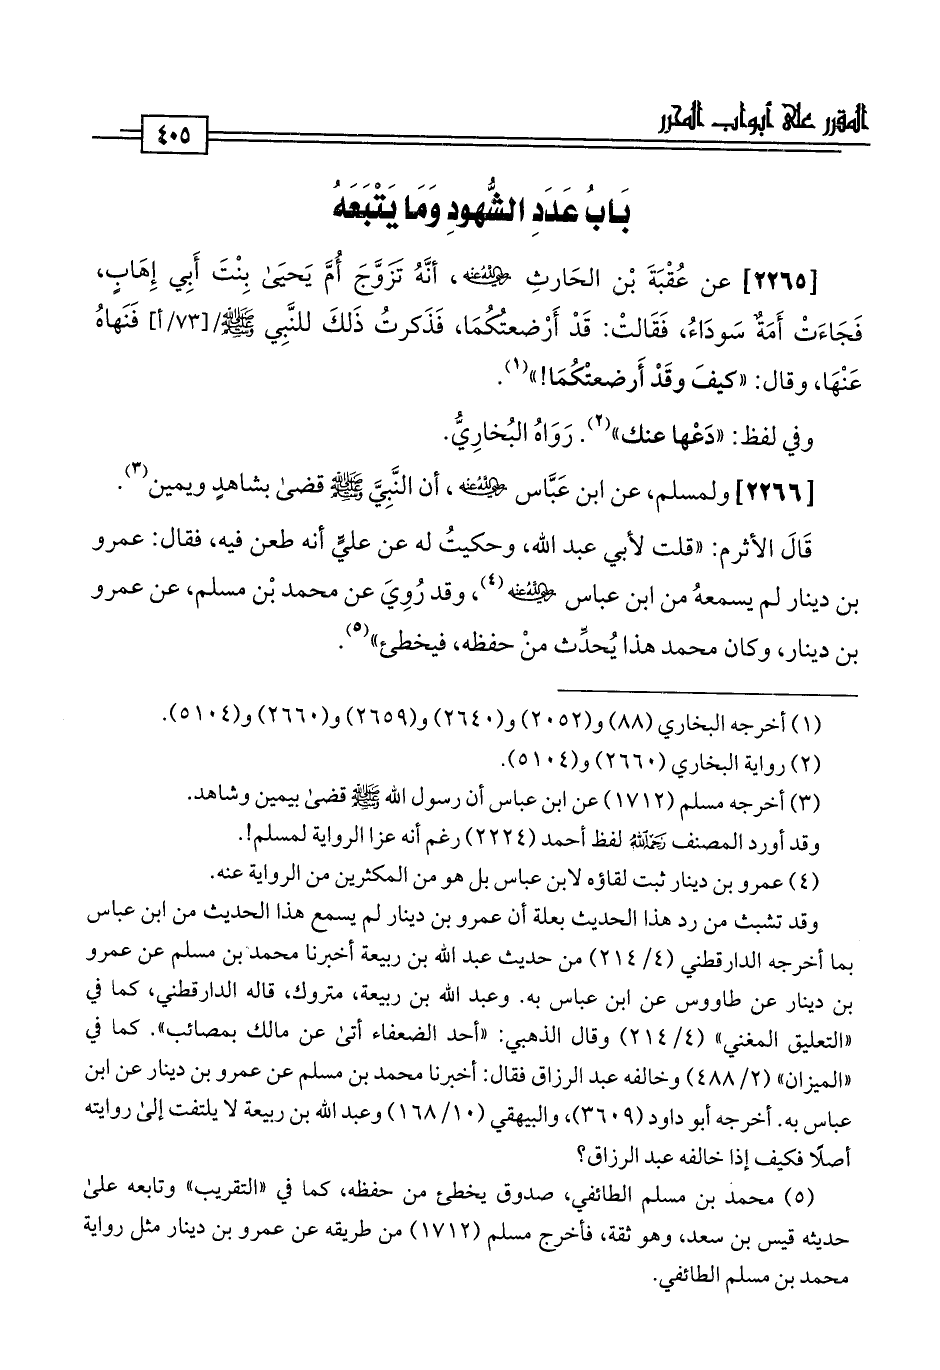 المقرر على أبواب المحرر
٤٠٥
بَابُ عَدَدِ الشُّهودِ وَمَا يَتْبَعَهُ
[٢٢٦٥] عن عُقْبَةَ بْنِ الحَارثِ رضي الله عنه، أنَّهُ تَزَوَّجَ أُمَّ يَحيَىٰ بِنْتَ أَبِي إِهَابٍ،
فَجَاءَتْ أمَةٌ سَودَاءُ، فَقَالتْ: قَدْ أَرْضعتُكُمَا، فَذَكرتُ ذَلكَ للنَّبي ﷺ/[٧٣/أ] فَنَهاهُ
عَنْهَا، وقال: «كيفَ وقَدْ أَرضعتْكُمَا!»(١).
وفي لفظ: «دَعْها عنك»(٢). رَوَاهُ البُخاريُّ.
[٢٢٦٦] ولمسلم، عن ابن عَبَّاس رضي الله عنه، أن النَّبيَّ ﷺ قضىٰ بشاهدٍ ويمين(٣).
قَالَ الأثرم: «قلت لأبي عبد الله، وحكيتُ له عن عليٍّ أنه طعن فيه، فقال: عمرو
بن دينار لم يسمعهُ من ابن عباس رضي الله عنه(٤)، وقد رُوِيَ عن محمد بْن مسلم، عن عمرو
بن دينار، وكان محمد هذا يُحدِّث منْ حفظه، فيخطئ»(٥).
(١) أخرجه البخاري (٨٨) و(٢٠٥٢) و(٢٦٤٠) و(٢٦٥٩) و(٢٦٦٠) و(٥١٠٤).
(٢) رواية البخاري (٢٦٦٠) و(٥١٠٤).
(٣) أخرجه مسلم (١٧١٢) عن ابن عباس أن رسول الله ﷺ قضىٰ بيمين وشاهد.
وقد أورد المصنف رحمه الله لفظ أحمد (٢٢٢٤) رغم أنه عزا الرواية لمسلم!.
(٤) عمرو بن دينار ثبت لقاؤه لابن عباس بل هو من المكثرين من الرواية عنه.
وقد تشبث من رد هذا الحديث بعلة أن عمرو بن دينار لم يسمع هذا الحديث من ابن عباس
بما أخرجه الدارقطني (٤/ ٢١٤) من حديث عبد الله بن ربيعة أخبرنا محمد بن مسلم عن عمرو
بن دينار عن طاووس عن ابن عباس به. وعبد الله بن ربيعة، متروك، قاله الدارقطني، كما في
«التعليق المغني» (٤/ ٢١٤) وقال الذهبي: «أحد الضعفاء أتىٰ عن مالك بمصائب». كما في
«الميزان» (٢/ ٤٨٨) وخالفه عبد الرزاق فقال: أخبرنا محمد بن مسلم عن عمرو بن دينار عن ابن
عباس به. أخرجه أبو داود (٣٦٠٩)، والبيهقي (١٠/ ١٦٨) وعبد الله بن ربيعة لا يلتفت إلىٰ روايته
أصلًا فكيف إذا خالفه عبد الرزاق؟
(٥) محمد بن مسلم الطائفي، صدوق يخطئ من حفظه، كما في «التقريب» وتابعه علىٰ
حديثه قيس بن سعد، وهو ثقة، فأخرج مسلم (١٧١٢) من طريقه عن عمرو بن دينار مثل رواية
محمد بن مسلم الطائفي.